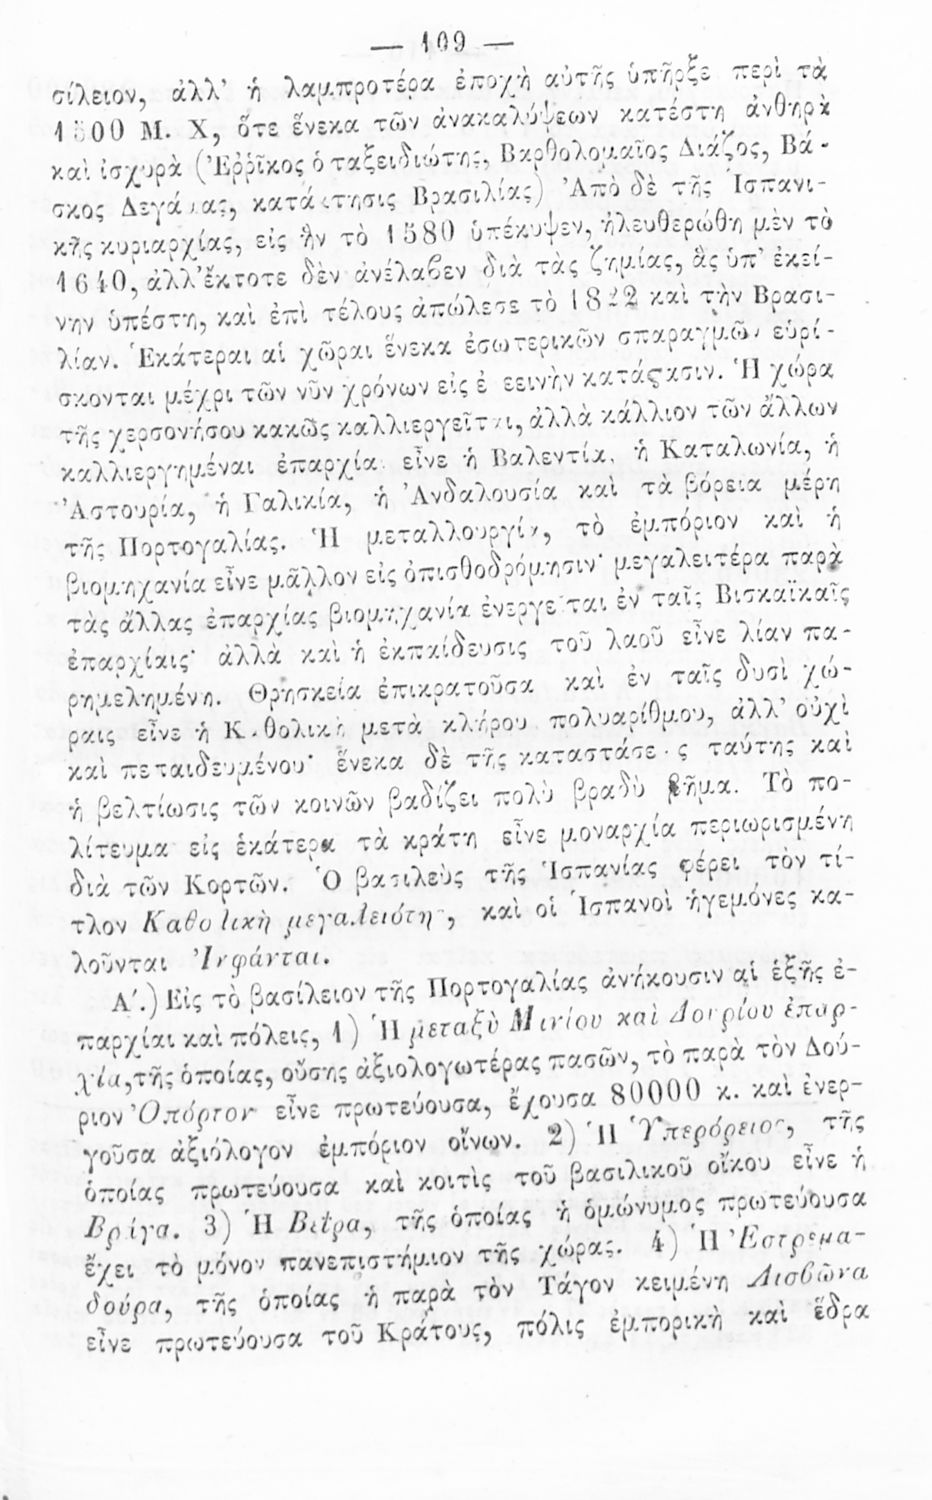 — 109 —
σίλειον, ἀλλ' ἡ λαμπροτέρα ἐποχὴ αὐτῆς ὑπῆρξε περὶ τὰ
1500 Μ. Χ, ὅτε ἕνεκα τῶν ἀνακαλύψεων κατέστη ἀνθηρὰ
καὶ ἰσχυρὰ (Ἐῤῥῖκος ὁ ταξειδιώτης, Βαρθολομαῖος Διάζος, Βά-
σκος Δεγάμας, κατάκτησις Βρασιλίας) Ἀπὸ δὲ τῆς Ἱσπανι-
κῆς κυριαρχίας, εἰς ἣν τὸ 1580 ὑπέκυψεν, ἠλευθερώθη μὲν τὸ
1640, ἀλλ' ἔκτοτε δὲν ἀνέλαβεν διὰ τὰς ζημίας, ἃς ὑπ' ἐκεί-
νην ὑπέστη, καὶ ἐπὶ τέλους ἀπώλεσε τὸ 1822 καὶ τὴν Βρασι-
λίαν. Ἑκάτεραι αἱ χῶραι ἕνεκα ἐσωτερικῶν σπαραγμῶν εὑρί-
σκονται μέχρι τῶν νῦν χρόνων εἰς ἐλεεινὴν κατάστασιν. Ἡ χώρα
τῆς χερσονήσου κακῶς καλλιεργεῖται, ἀλλὰ κάλλιον τῶν ἄλλων
καλλιεργημέναι ἐπαρχίαι εἶνε ἡ Βαλεντία, ἡ Καταλωνία, ἡ
Ἀστουρία, ἡ Γαλικία, ἡ Ἀνδαλουσία καὶ τὰ βόρεια μέρη
τῆς Πορτογαλίας. Ἡ μεταλλουργία, τὸ ἐμπόριον καὶ ἡ
βιομηχανία εἶνε μᾶλλον εἰς ὀπισθοδρόμησιν· μεγαλειτέρα παρὰ
τὰς ἄλλας ἐπαρχίας βιομηχανία ἐνεργεῖται ἐν ταῖς Βισκαϊκαῖς
ἐπαρχίαις· ἀλλὰ καὶ ἡ ἐκπαίδευσις τοῦ λαοῦ εἶνε λίαν πα-
ρημελημένη. Θρησκεία ἐπικρατοῦσα καὶ ἐν ταῖς δυσὶ χώ-
ραις εἶνε ἡ Καθολικὴ μετὰ κλήρου πολυαρίθμου, ἀλλ' οὐχὶ
καὶ πεπαιδευμένου· ἕνεκα δὲ τῆς καταστάσεως ταύτης καὶ
ἡ βελτίωσις τῶν κοινῶν βαδίζει πολὺ βραδὺ βῆμα. Τὸ πο-
λίτευμα εἰς ἑκάτερα τὰ κράτη εἶνε μοναρχία περιωρισμένη
διὰ τῶν Κορτῶν. Ὁ βασιλεὺς τῆς Ἱσπανίας φέρει τον τί-
τλον Καθολικὴ μεγαλειότης, καὶ οἱ Ἱσπανοὶ ἡγεμόνες κα-
λοῦνται Ἰνφάνται.
Α΄.) Εἰς τὸ βασίλειον τῆς Πορτογαλίας ἀνήκουσιν αἱ ἑξῆς ἐ-
παρχίαι καὶ πόλεις, 1) Ἡ μεταξὺ Μινίου καὶ Δουρίου ἐπαρ-
χία, τῆς ὁποίας, οὔσης ἀξιολογωτέρας πασῶν, τὸ παρὰ τὸν Δού-
ριον Ὀπόρτον εἶνε πρωτεύουσα, ἔχουσα 80000 κ. καὶ ἐνερ-
γοῦσα ἀξιόλογον ἐμπόριον οἴνων. 2) Ἡ Ὑπερόρειος, τῆς
ὁποίας πρωτεύουσα καὶ κοιτὶς τοῦ βασιλικοῦ οἴκου εἶνε ἡ
Βρίγα. 3) Ἡ Βεΐρα, τῆς ὁποίας ἡ ὁμώνυμος πρωτεύουσα
ἔχει τὸ μόνον πανεπιστήμιον τῆς χώρας. 4) Ἡ Ἐστρεμα-
δούρα, τῆς ὁποίας ἡ παρὰ τὸν Τάγον κειμένη Λισβῶνα
εἶνε πρωτεύουσα τοῦ Κράτους, πόλις ἐμπορικὴ καὶ ἕδρα